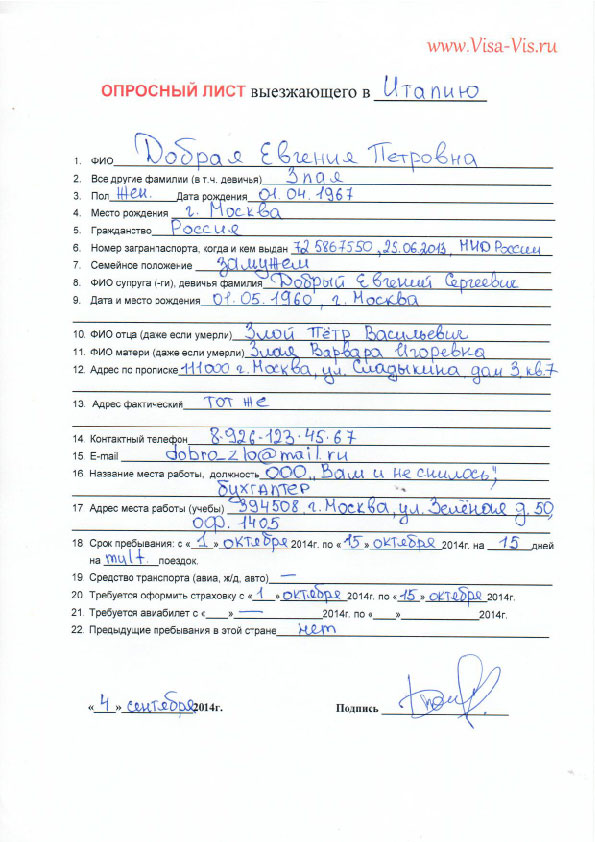 www.Visa-Vis.ru
ОПРОСНЫЙ ЛИСТ выезжающего в Италию
1. ФИО Добрая Евгения Петровна
2. Все другие фамилии (в т.ч. девичья) Злая
3. Пол жен. Дата рождения 01.04.1967
4. Место рождения г. Москва
5. Гражданство Россия
6. Номер загранпаспорта, когда и кем выдан 72 5867550, 25.06.2013, МИД России
7. Семейное положение замужем
8. ФИО супруга (-ги), девичья фамилия Добрый Евгений Сергеевич
9. Дата и место рождения 01.05.1960, г. Москва
10. ФИО отца (даже если умерли) Злой Пётр Васильевич
11. ФИО матери (даже если умерли) Злая Варвара Игоревна
12. Адрес по прописке 111000 г. Москва, ул. Сладыкина, дом 3, кв.7
13. Адрес фактический тот же
14. Контактный телефон 8-926-123-45-67
15. E-mail dobro_zlo@mail.ru
16. Название места работы, должность ООО „Вам и не снилось",
бухгалтер
17. Адрес места работы (учебы) 394508, г. Москва, ул. Зелёная д. 50,
оф. 1405
18. Срок пребывания: с « 1 » октября 2014г. по « 15 » октября 2014г. на 15 дней
на mult. поездок.
19. Средство транспорта (авиа, ж/д, авто) —
20. Требуется оформить страховку с « 1 » октября 2014г. по « 15 » октября 2014г.
21. Требуется авиабилет с «___» — 2014г. по «___» 2014г.
22. Предыдущие пребывания в этой стране нет
« 4 » сентября 2014г. Подпись